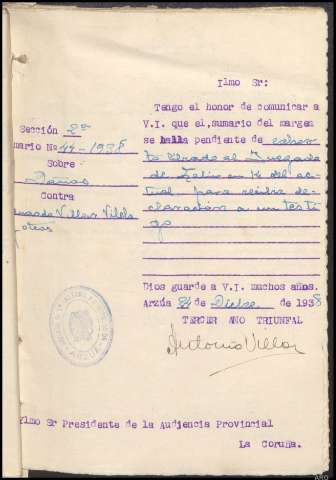 Ilmo Sr:
Tengo el honor de comunicar a
V.I. que el, sumario del margen
se halla pendiente de exhor
to librado al Juzgado
de Lalin en 14 del ac
tual - para recibir de-
claración a un testi
go
Sección 2ª
mario Nº 44-1938
Sobre
Daños
Contra
Villar Vilela
y otros
Dios guarde a V.I. muchos años.
Arzúa 24 de Dicbre de 1938
TERCER AÑO TRIUNFAL
Antonio Villar
ARZUA
Ylmo Sr Presidente de la Audiencia Provincial
La Coruña.